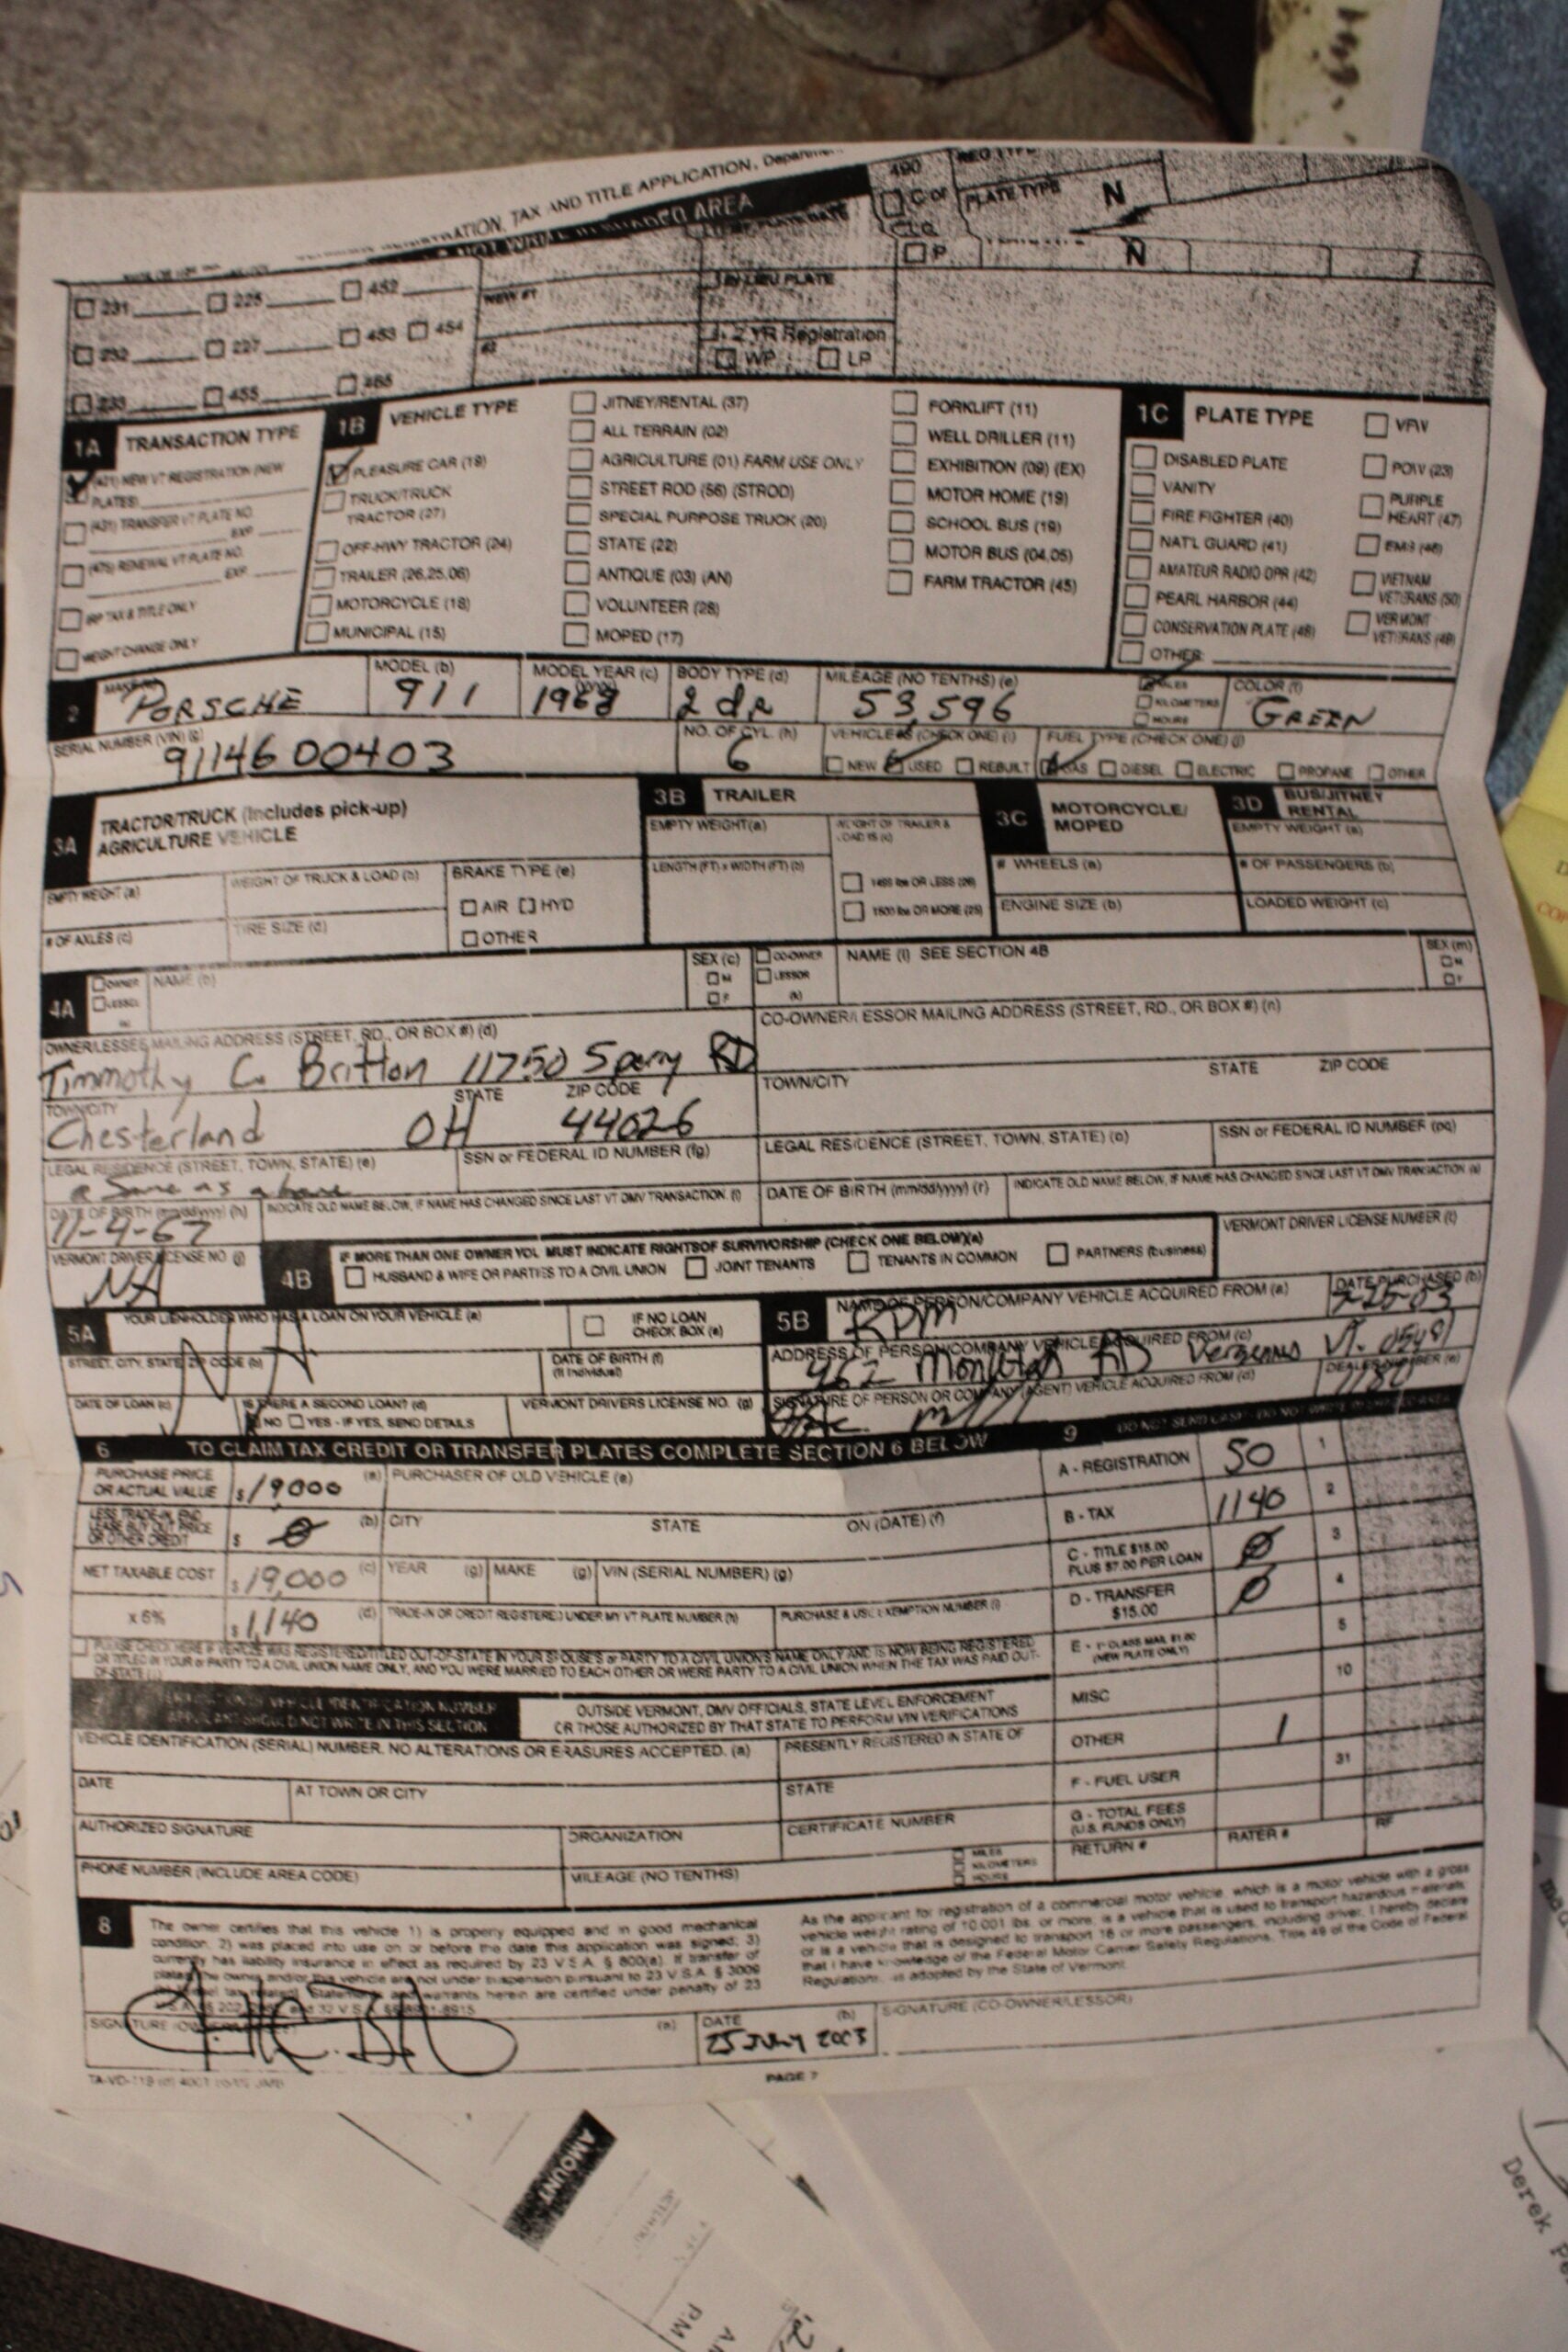 REGISTRATION, TAX AND TITLE APPLICATION,
SHADED AREA
C or
PLATE TYPE N
P N
231 225 452
IN LIEU PLATE
232 227 453 454
2 YR Registration
WP LP
233 455 465
1A TRANSACTION TYPE
(421) NEW VT REGISTRATION (NEW PLATES)
(431) TRANSFER VT PLATE NO.
EXP
(475) RENEWAL VT PLATE NO.
EXP
IRP TAX & TITLE ONLY
WEIGHT CHANGE ONLY
1B VEHICLE TYPE
PLEASURE CAR (18)
TRUCK/TRUCK
TRACTOR (27)
OFF-HWY TRACTOR (24)
TRAILER (26,25,06)
MOTORCYCLE (18)
MUNICIPAL (15)
JITNEY/RENTAL (37)
ALL TERRAIN (02)
AGRICULTURE (01) FARM USE ONLY
STREET ROD (56) (STROD)
SPECIAL PURPOSE TRUCK (20)
STATE (22)
ANTIQUE (03) (AN)
VOLUNTEER (28)
MOPED (17)
FORKLIFT (11)
WELL DRILLER (11)
EXHIBITION (09) (EX)
MOTOR HOME (19)
SCHOOL BUS (19)
MOTOR BUS (04,05)
FARM TRACTOR (45)
1C PLATE TYPE
DISABLED PLATE
VANITY
FIRE FIGHTER (40)
NAT'L GUARD (41)
AMATEUR RADIO OPR (42)
PEARL HARBOR (44)
CONSERVATION PLATE (48)
OTHER
VFW
POW (23)
PURPLE
HEART (47)
EMS (46)
VIETNAM
VETERANS (50)
VERMONT
VETERANS (49)
2 MODEL (b) MODEL YEAR (c) BODY TYPE (d) MILEAGE (NO TENTHS) (e) MILES KILOMETERS HOURS COLOR (f)
PORSCHE 911 1968 2 dr 53,596 GREEN
SERIAL NUMBER (VIN) (g) NO. OF CYL. (h) VEHICLE IS (CHECK ONE) (i) FUEL TYPE (CHECK ONE) (j)
9114600403 6 NEW USED REBUILT GAS DIESEL ELECTRIC PROPANE OTHER
3A TRACTOR/TRUCK (Includes pick-up)
AGRICULTURE VEHICLE
EMPTY WEIGHT (a) WEIGHT OF TRUCK & LOAD (b) BRAKE TYPE (e)
AIR HYD
# OF AXLES (c) TIRE SIZE (d) OTHER
3B TRAILER
EMPTY WEIGHT (a) WEIGHT OF TRAILER &
LOAD IS (c)
LENGTH (FT) x WIDTH (FT) (b)
1499 lbs OR LESS (26)
1500 lbs OR MORE (25)
3C MOTORCYCLE/
MOPED
# WHEELS (a)
ENGINE SIZE (b)
3D BUS/JITNEY
RENTAL
EMPTY WEIGHT (a)
# OF PASSENGERS (b)
LOADED WEIGHT (c)
4A OWNER LESSEE NAME (b) SEX (c) M F
CO-OWNER LESSOR (k) NAME (l) SEE SECTION 4B SEX (m) M F
OWNER/LESSEE MAILING ADDRESS (STREET, RD., OR BOX #) (d)
Timmothy C. Britton 11750 Sperry RD
CO-OWNER/LESSOR MAILING ADDRESS (STREET, RD., OR BOX #) (n)
TOWN/CITY STATE ZIP CODE
Chesterland OH 44026
TOWN/CITY STATE ZIP CODE
LEGAL RESIDENCE (STREET, TOWN, STATE) (e) SSN or FEDERAL ID NUMBER (fg)
Same as above
LEGAL RESIDENCE (STREET, TOWN, STATE) (o) SSN or FEDERAL ID NUMBER (pq)
DATE OF BIRTH (mm/dd/yyyy) (h) INDICATE OLD NAME BELOW, IF NAME HAS CHANGED SINCE LAST VT DMV TRANSACTION. (i)
11-4-67
DATE OF BIRTH (mm/dd/yyyy) (r) INDICATE OLD NAME BELOW, IF NAME HAS CHANGED SINCE LAST VT DMV TRANSACTION. (s)
VERMONT DRIVER LICENSE NO. (j)
NA
4B IF MORE THAN ONE OWNER YOU MUST INDICATE RIGHTS OF SURVIVORSHIP (CHECK ONE BELOW)(a)
HUSBAND & WIFE OR PARTIES TO A CIVIL UNION JOINT TENANTS TENANTS IN COMMON PARTNERS (business)
VERMONT DRIVER LICENSE NUMBER (t)
5A YOUR LIENHOLDER WHO HAS A LOAN ON YOUR VEHICLE (a) IF NO LOAN
CHECK BOX (e)
STREET, CITY, STATE, ZIP CODE (b) DATE OF BIRTH (f)
(If individual)
DATE OF LOAN (c) IS THERE A SECOND LOAN? (d) VERMONT DRIVERS LICENSE NO. (g)
NO YES - IF YES, SEND DETAILS
5B NAME OF PERSON/COMPANY VEHICLE ACQUIRED FROM (a) DATE PURCHASED (b)
RPM
ADDRESS OF PERSON/COMPANY VEHICLE ACQUIRED FROM (c)
462 Monkton RD Vt.
SIGNATURE OF PERSON OR COMPANY (AGENT) VEHICLE ACQUIRED FROM (d) DEALER NUMBER (e)
6 TO CLAIM TAX CREDIT OR TRANSFER PLATES COMPLETE SECTION 6 BELOW
PURCHASE PRICE
OR ACTUAL VALUE $19000 (a) PURCHASER OF OLD VEHICLE (e)
LESS TRADE-IN, END
LEASE BUY OUT PRICE
OR OTHER CREDIT $ 0 (b) CITY STATE ON (DATE) (f)
NET TAXABLE COST $19,000 (c) YEAR (g) MAKE (g) VIN (SERIAL NUMBER) (g)
x 6% $1,140 (d) TRADE-IN OR CREDIT REGISTERED UNDER MY VT PLATE NUMBER (h) PURCHASE & USE EXEMPTION NUMBER (i)
PLEASE CHECK HERE IF VEHICLE WAS REGISTERED/TITLED OUT-OF-STATE IN YOUR SPOUSE'S or PARTY TO A CIVIL UNION'S NAME ONLY AND IS NOW BEING REGISTERED
OR TITLED IN YOUR or PARTY TO A CIVIL UNION NAME ONLY, AND YOU WERE MARRIED TO EACH OTHER OR WERE PARTY TO A CIVIL UNION WHEN THE TAX WAS PAID OUT-
OF-STATE
9
A - REGISTRATION 50 1
B - TAX 1140 2
C - TITLE $15.00
PLUS $7.00 PER LOAN 0 3
D - TRANSFER
$15.00 0 4
E - 1st CLASS MAIL $1.00
(NEW PLATE ONLY) 5
MISC 10
OTHER 1
F - FUEL USER 31
G - TOTAL FEES
(U.S. FUNDS ONLY)
RETURN # RATER # RF
VEHICLE IDENTIFICATION NUMBER
APPLICANT SHOULD NOT WRITE IN THIS SECTION
OUTSIDE VERMONT, DMV OFFICIALS, STATE LEVEL ENFORCEMENT
OR THOSE AUTHORIZED BY THAT STATE TO PERFORM VIN VERIFICATIONS
VEHICLE IDENTIFICATION (SERIAL) NUMBER. NO ALTERATIONS OR ERASURES ACCEPTED. (a) PRESENTLY REGISTERED IN STATE OF
DATE AT TOWN OR CITY STATE
AUTHORIZED SIGNATURE ORGANIZATION CERTIFICATE NUMBER
PHONE NUMBER (INCLUDE AREA CODE) MILEAGE (NO TENTHS) MILES KILOMETERS HOURS
8 The owner certifies that this vehicle 1) is properly equipped and in good mechanical
condition, 2) was placed into use on or before the date this application was signed; 3)
currently has liability insurance in effect as required by 23 V.S.A. § 800(a). If transfer of
plates the owner and/or this vehicle are not under suspension pursuant to 23 V.S.A. § 3009
Statements and warrants herein are certified under penalty of 23
As the applicant for registration of a commercial motor vehicle, which is a motor vehicle with a gross
vehicle weight rating of 10,001 lbs. or more, is a vehicle that is used to transport hazardous materials
or is a vehicle that is designed to transport 16 or more passengers, including driver, I hereby declare
that I have knowledge of the Federal Motor Carrier Safety Regulations, Title 49 of the Code of Federal
Regulations as adopted by the State of Vermont.
SIGNATURE (a) DATE (b) SIGNATURE (CO-OWNER/LESSOR)
25 July 2003
PAGE 7
AMOUNT
PM
Derek